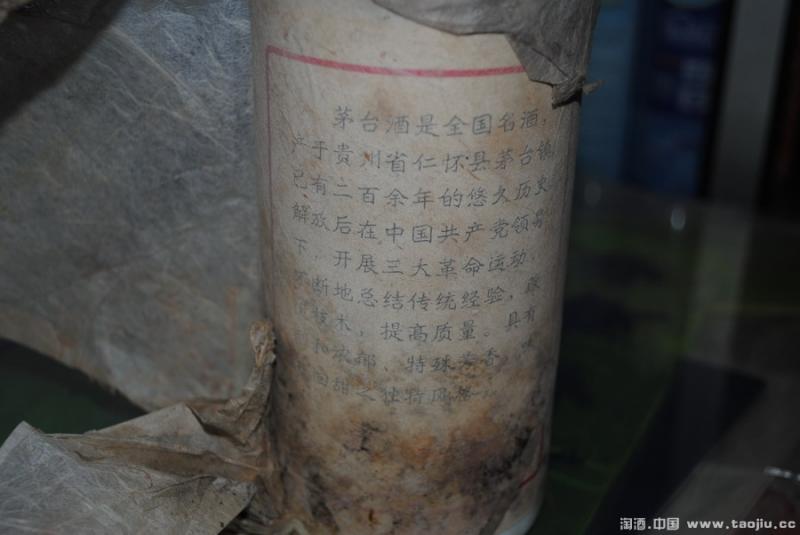 茅台酒是全国名酒，
产于贵州省仁怀县茅台镇，
已有二百余年的悠久历史。
解放后在中国共产党领导
下，开展三大革命运动，
不断地总结传统经验，
技术，提高质量。具有
和浓郁、特殊芳香，味
回甜之独特风格
淘酒.中国 www.taojiu.cc